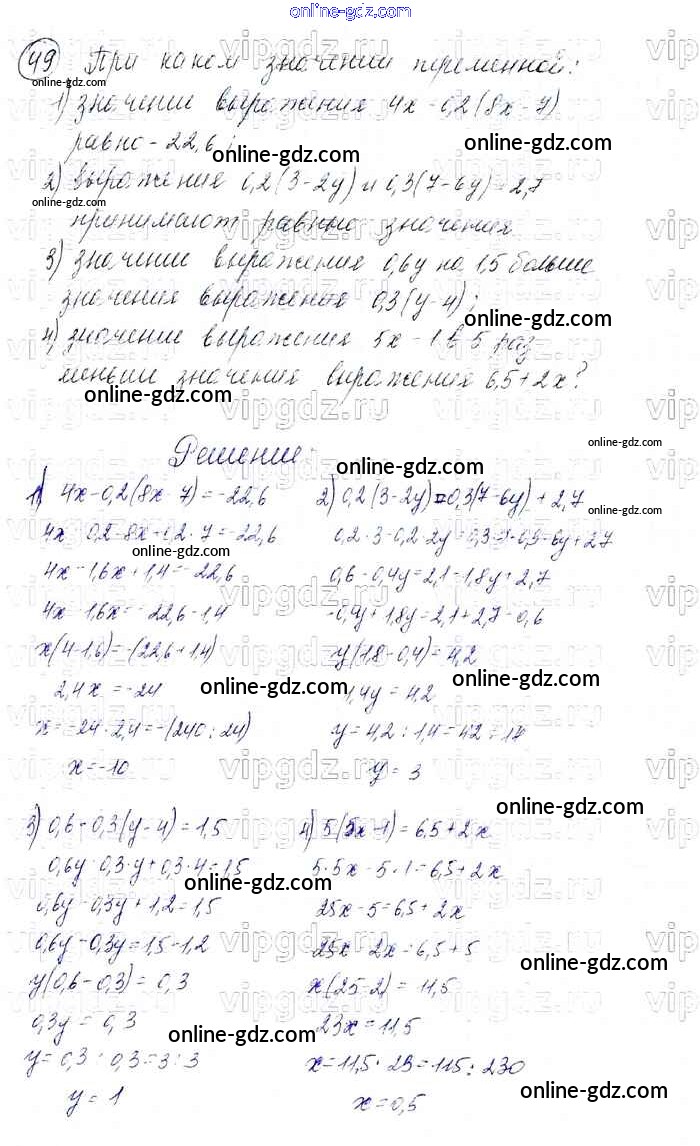 online-gdz.com
49 При каком значении переменной:
online-gdz.com
1) значение выражения 4x - 0,2(8x - 7)
равно - 22,6 ;
online-gdz.com
2) выражения 0,2(3-2y) и 0,3(7-6y) + 2,7
online-gdz.com
принимают равные значения
3) значение выражения 0,6y на 1,5 больше
значения выражения 0,3(y-4);
online-gdz.com
4) значение выражения 5x - 1 в 5 раз
меньше значения выражения 6,5+2x?
online-gdz.com
Решение:
online-gdz.com
1) 4x-0,2(8x-7)=-22,6
4x-0,2·8x+0,2·7=-22,6
online-gdz.com
4x-1,6x+1,4=-22,6
4x-1,6x=-22,6-1,4
x(4-1,6)=-(22,6+1,4)
2,4x=-24
online-gdz.com
x=-24:2,4=-(240:24)
x=-10
2) 0,2(3-2y)=0,3(7-6y)+2,7
0,2·3-0,2·2y=0,3·7-0,3·6y+2,7
0,6-0,4y=2,1-1,8y+2,7
-0,4y+1,8y=2,1+2,7-0,6
online-gdz.com
y(1,8-0,4)=4,2
online-gdz.com
1,4y=4,2
y=4,2:1,4=42:14
y=3
online-gdz.com
3) 0,6-0,3(y-4)=1,5
0,6y-0,3·y+0,3·4=1,5
online-gdz.com
0,6y-0,3y+1,2=1,5
0,6y-0,3y=1,5-1,2
y(0,6-0,3)=0,3
0,3y=0,3
online-gdz.com
y=0,3:0,3=3:3
y=1
4) 5(5x-1)=6,5+2x
5·5x-5·1=6,5+2x
25x-5=6,5+2x
25x-2x=6,5+5
online-gdz.com
x(25-2)=11,5
23x=11,5
x=11,5:23=115:230
online-gdz.com
x=0,5